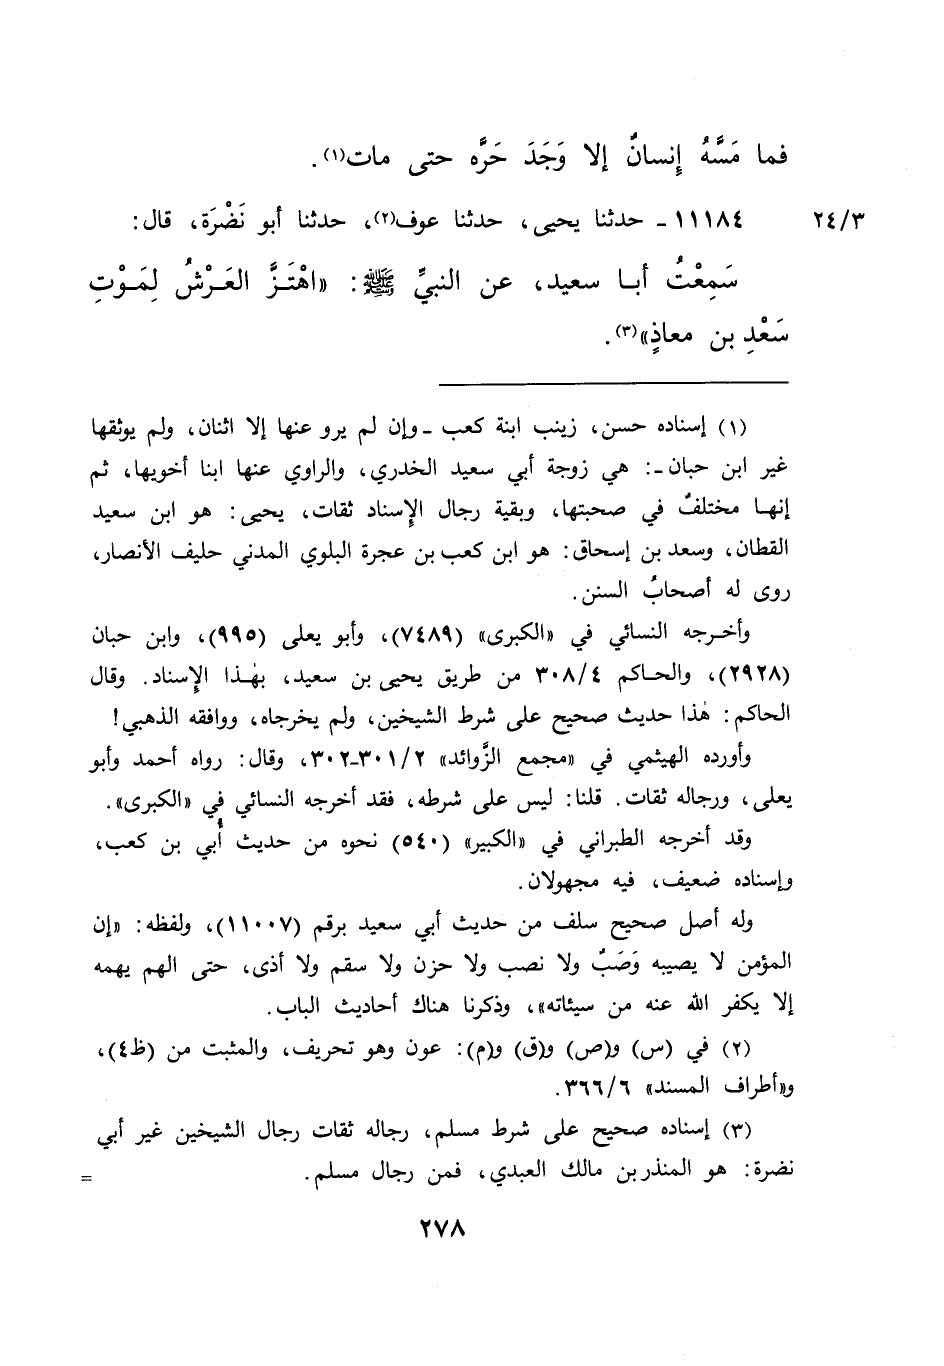 فما مَسَّهُ إِنسانٌ إلا وَجَدَ حَرَّه حتى مات(١).
٢٤/٣ ١١١٨٤ ـ حدثنا يحيى، حدثنا عوف(٢)، حدثنا أبو نَضْرَة، قال:
سَمِعْتُ أبـا سعيد، عن النبيِّ ﷺ: «اهْتَـزَّ العَـرْشُ لِمَـوْتِ
سَعْدِ بن معاذٍ»(٣).
(١) إسناده حسن، زينب ابنة كعب ـ وإن لم يرو عنها إلا اثنان، ولم يوثقها
غير ابن حبان ـ: هي زوجة أبي سعيد الخدري، والراوي عنها ابنا أخويها، ثم
إنهـا مختلفٌ في صحبتها، وبقية رجال الإسناد ثقات، يحيى: هو ابن سعيد
القطان، وسعد بن إسحاق: هو ابن كعب بن عجرة البلوي المدني حليف الأنصار،
روى له أصحابُ السنن.
وأخـرجه النسائي في «الكبرى» (٧٤٨٩)، وأبو يعلى (٩٩٥)، وابن حبان
(٢٩٢٨)، والحـاكم ٣٠٨/٤ من طريق يحيى بن سعيد، بهٰـذا الإسناد. وقال
الحاكم: هٰذا حديث صحيح على شرط الشيخين، ولم يخرجاه، ووافقه الذهبي!
وأورده الهيثمي في «مجمع الزَّوائد» ٣٠١/٢ـ٣٠٢، وقال: رواه أحمد وأبو
يعلى، ورجاله ثقات. قلنا: ليس على شرطه، فقد أخرجه النسائي في «الكبرى».
وقد أخرجه الطبراني في «الكبير» (٥٤٠) نحوه من حديث أُبي بن كعب،
وإسناده ضعيف، فيه مجهولان.
وله أصل صحيح سلف من حديث أبي سعيد برقم (١١٠٠٧)، ولفظه: «إن
المؤمن لا يصيبه وَصَبٌ ولا نصب ولا حزن ولا سقم ولا أذى، حتى الهم يهمه
إلا يكفر الله عنه من سيئاته»، وذكرنا هناك أحاديث الباب.
(٢) في (س) و(ص) و(ق) و(م): عون وهو تحريف، والمثبت من (ظ٤)،
و«أطراف المسند» ٣٦٦/٦.
(٣) إسناده صحيح على شرط مسلم، رجاله ثقات رجال الشيخين غير أبي
نضرة: هو المنذر بن مالك العبدي، فمن رجال مسلم. =
٢٧٨